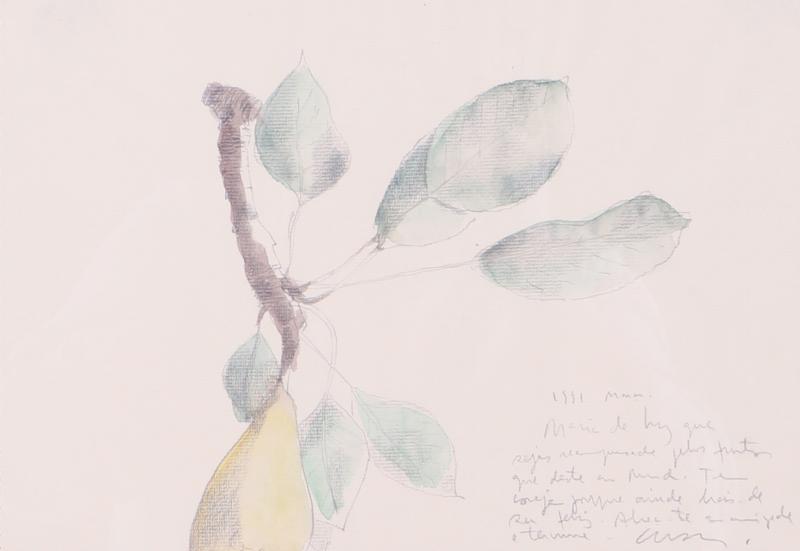 1991
Maria de Luz que
sejas recompensada pelos frutos
que deste ao Mundo. Tem
coragem porque ainda hás-de
ser feliz. Abraça-te com amizade
e ternura